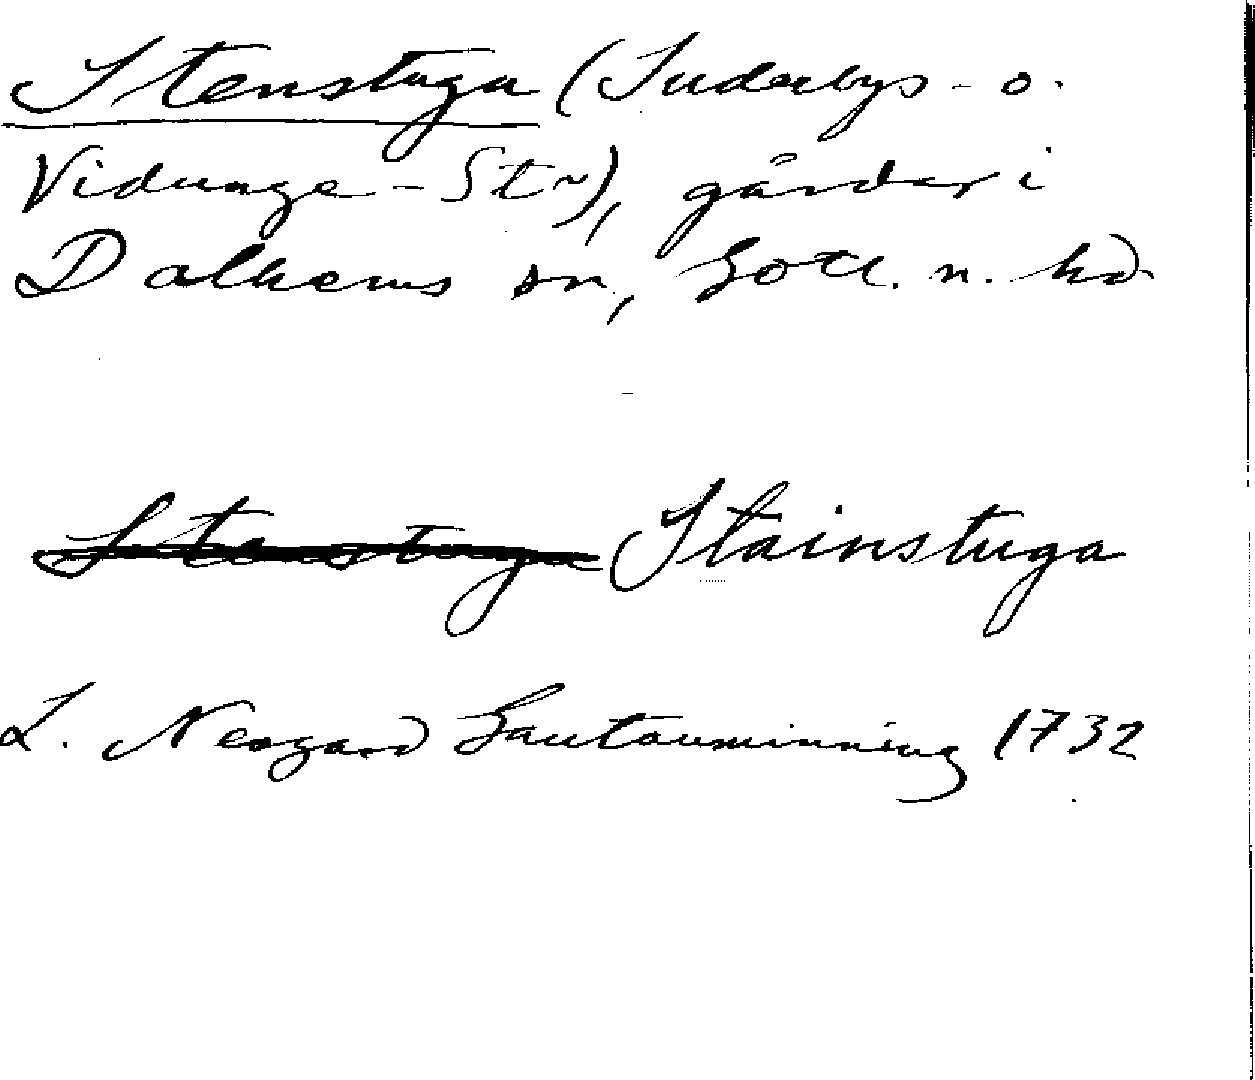 Stenstuga (Suderbys- o.
Vidunge-St~), gårdar i
Dalhems sn, Gotl. n. hd.
Stenstuga Stainstuga
L. Neogard Gautauminning 1732